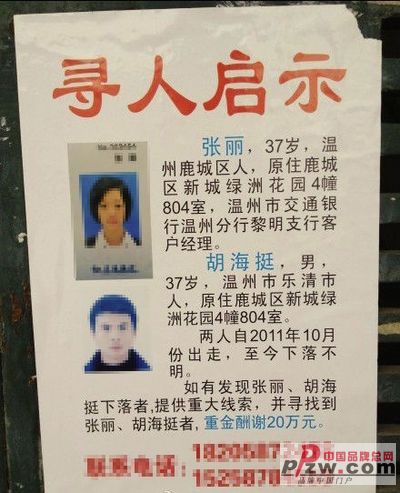 寻人启示
张丽，37岁，温
州鹿城区人，原住鹿城
区新城绿洲花园4幢
804室，温州市交通银
行温州分行黎明支行客
户经理。
胡海挺，男，
37岁，温州市乐清市
人，原住鹿城区新城绿
洲花园4幢804室。
两人自2011年10月
份出走，至今下落不
明。
如有发现张丽、胡海
挺下落者,提供重大线索，并寻找到
张丽、胡海挺者,重金酬谢20万元。
中国品牌总网
Ppzw.com
品牌中国门户